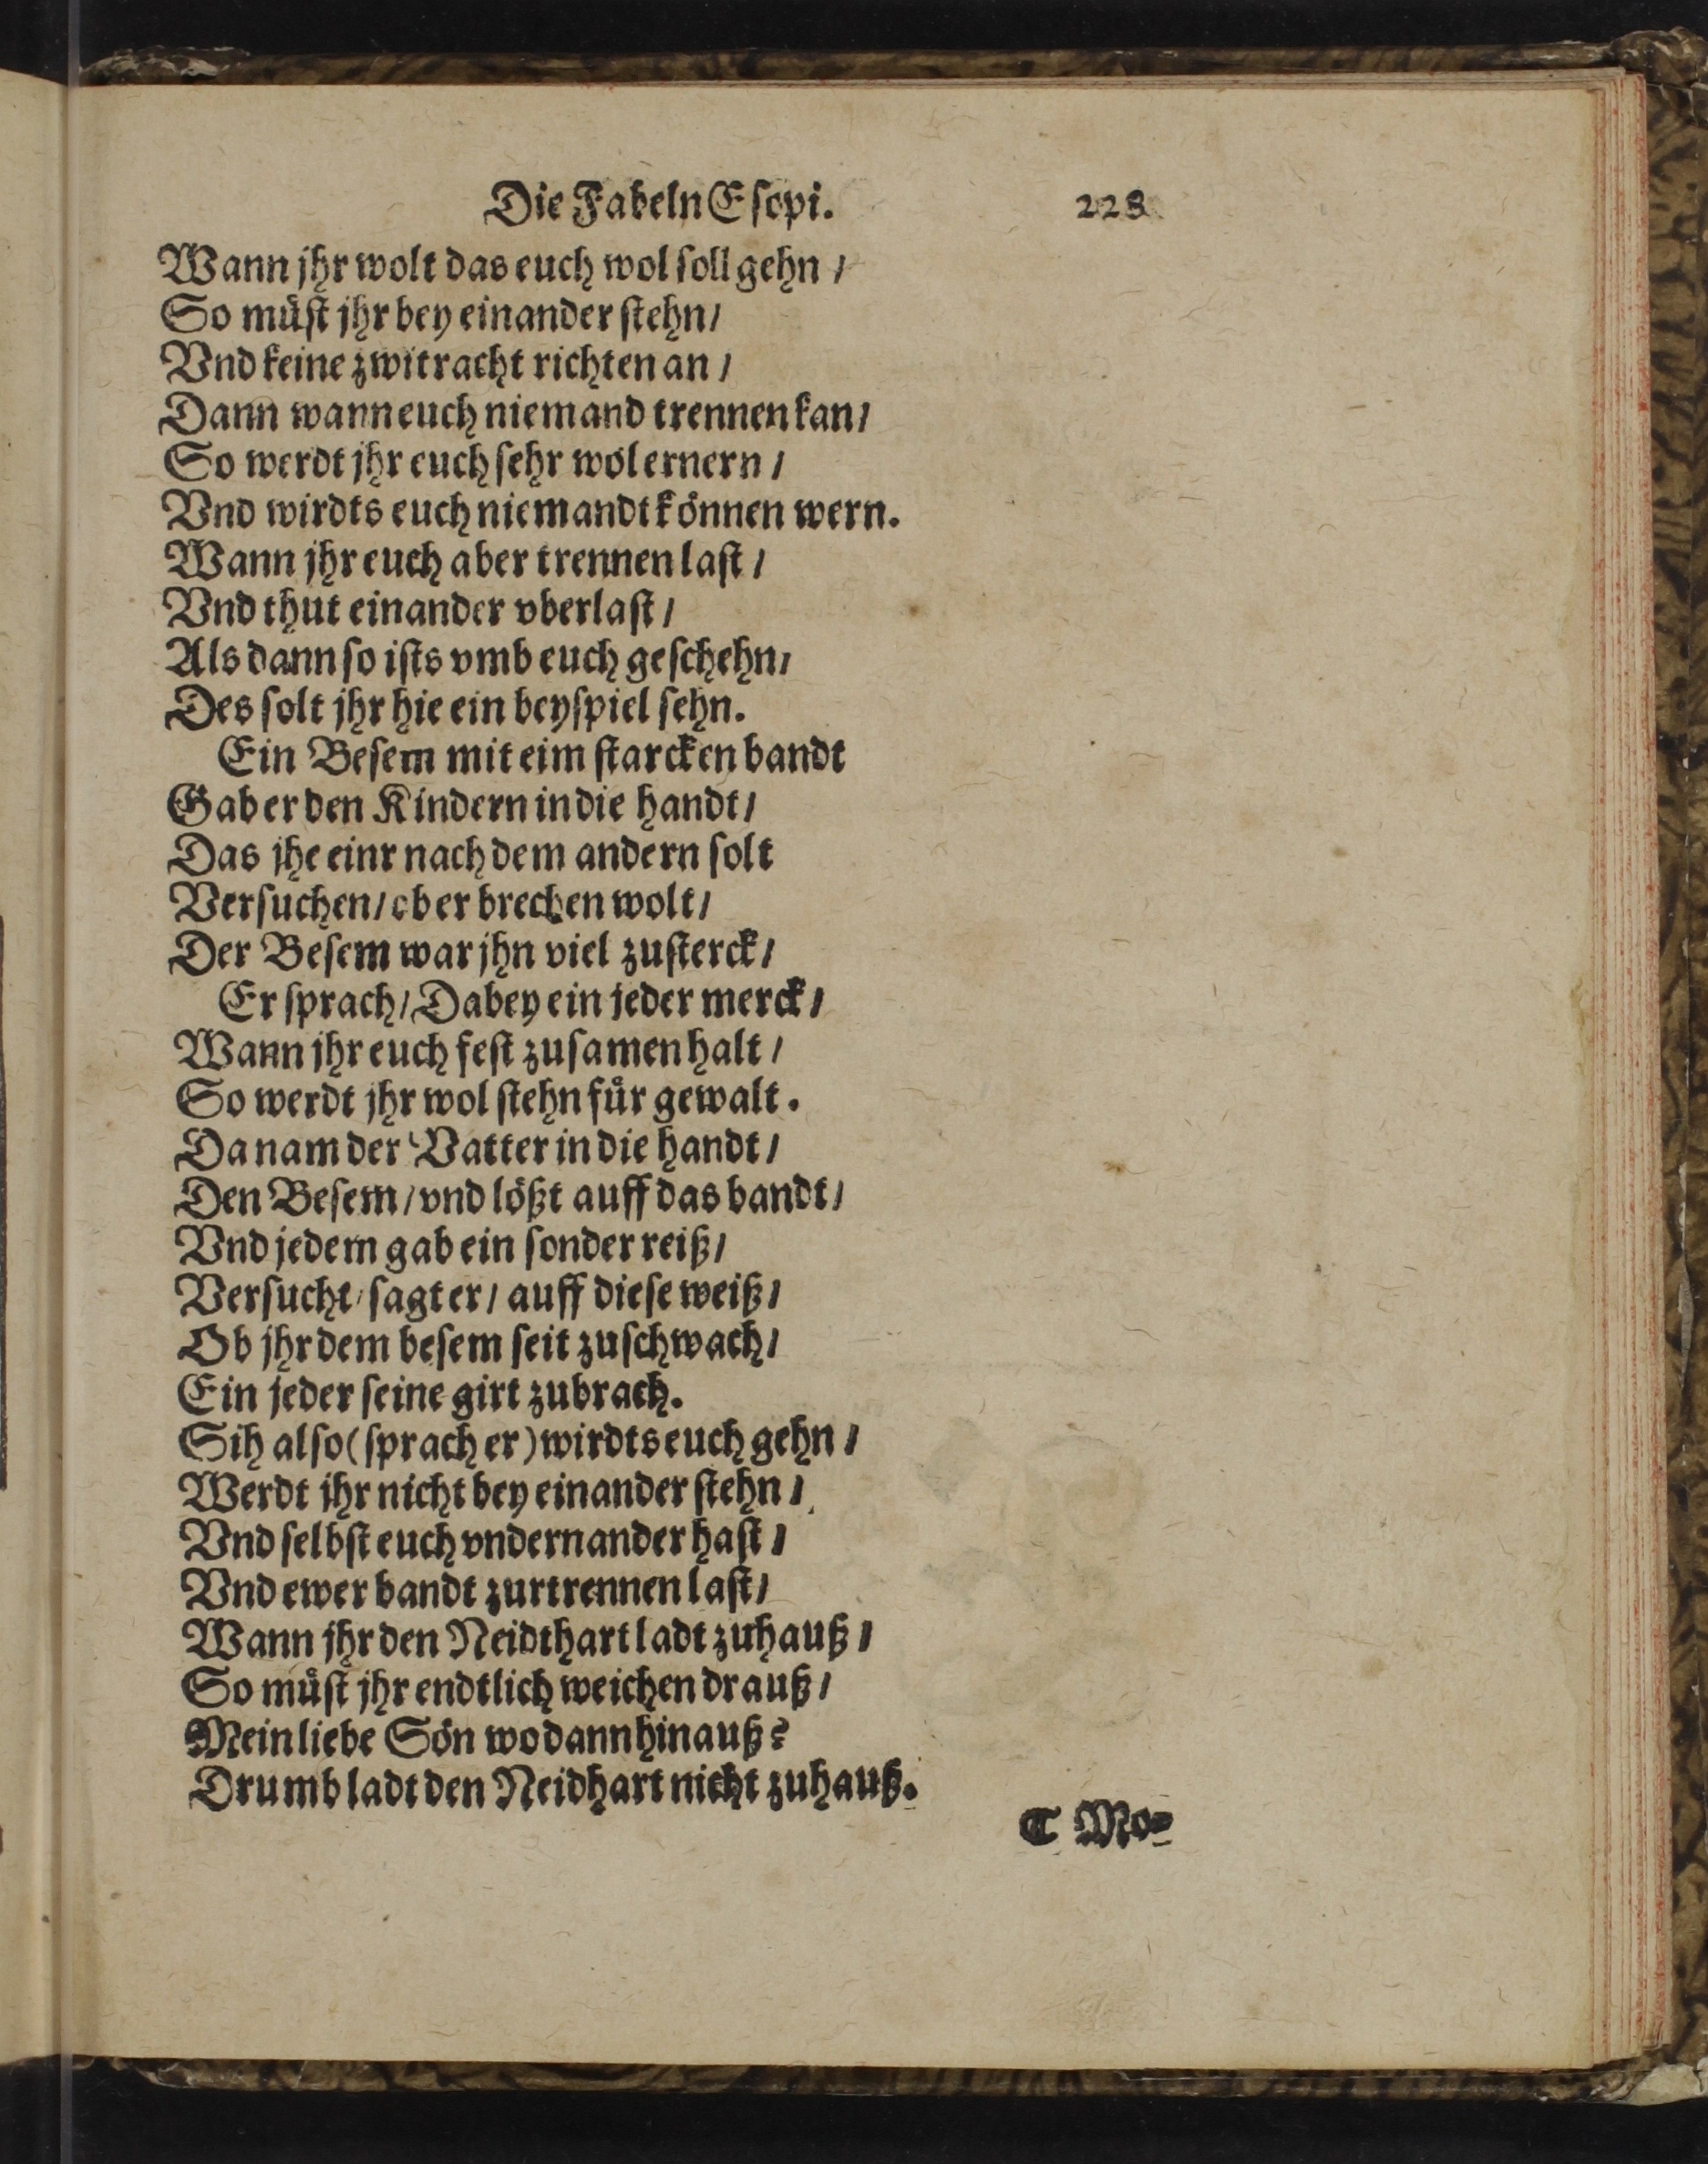 Die Fabeln Esopi. 228
Wann jhr wolt das euch wol soll gehn /
So müst jhr bey einander stehn /
Vnd keine zwitracht richten an /
Dann wann euch niemand trennen kan /
So werdt jhr euch sehr wol ernern /
Vnd wirdts euch niemandt können wern.
Wann jhr euch aber trennen last /
Vnd thut einander vberlast /
Als dann so ists vmb euch geschehn /
Des solt jhr hie ein beyspiel sehn.
Ein Besem mit eim starcken bandt
Gab er den Kindern in die handt /
Das jhe einr nach dem andern solt
Versuchen / ob er brechen wolt /
Der Besem war jhn viel zusterck /
Er sprach / Dabey ein jeder merck /
Wann jhr euch fest zusamen halt /
So werdt jhr wol stehn für gewalt.
Da nam der Vatter in die handt /
Den Besem / vnd lößt auff das bandt /
Vnd jedem gab ein sonder reiß /
Versucht / sagt er / auff diese weiß /
Ob jhr dem besem seit zuschwach /
Ein jeder seine girt zubrach.
Sih also (sprach er) wirdts euch gehn /
Werdt jhr nicht bey einander stehn /
Vnd selbst euch vndernander hast /
Vnd ewer bandt zurtrennen last /
Wann jhr den Neidthart ladt zuhauß /
So müst jhr endtlich weichen drauß /
Mein liebe Sön wo dann hinauß?
Drumb ladt den Neidhart nicht zuhauß.
C Mo-